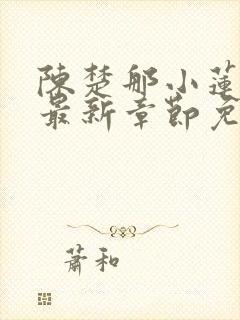 陳楚那小蓮
最新章節免
蕭和